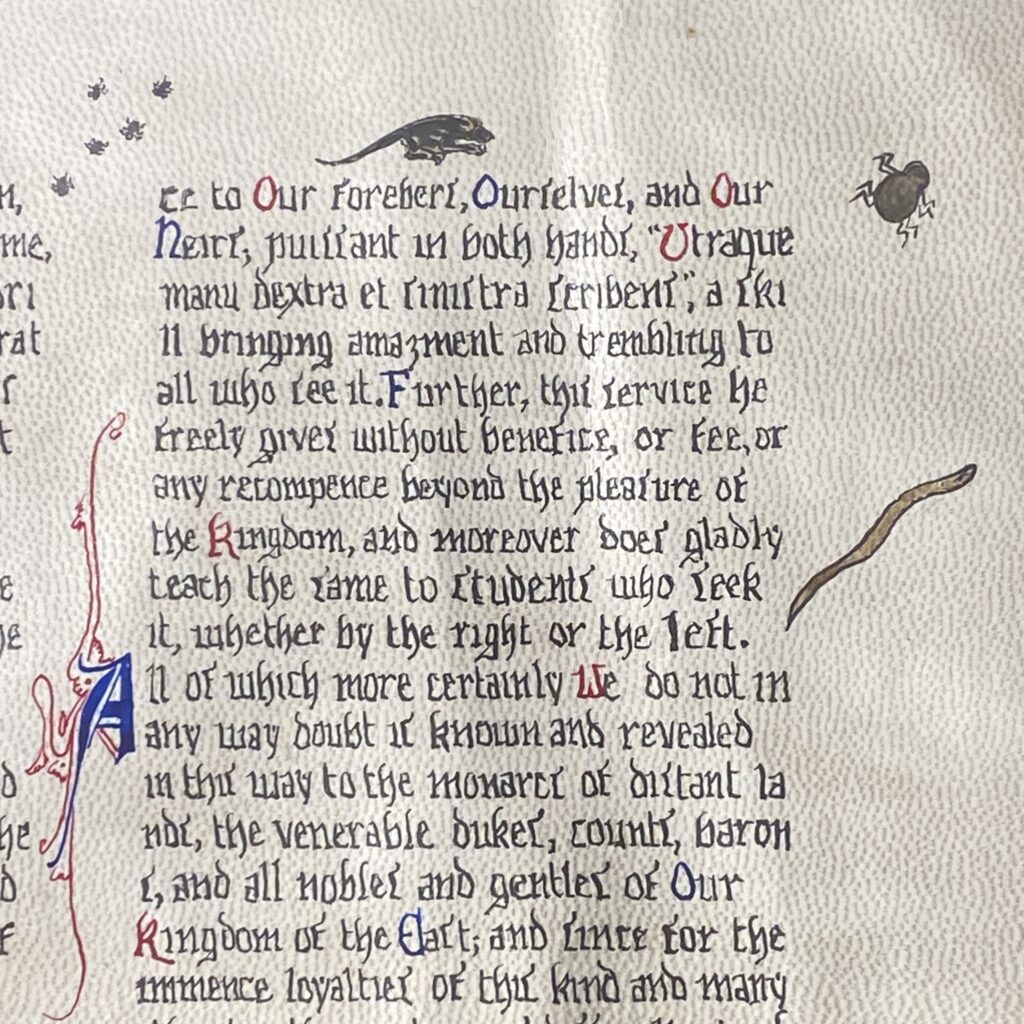 n,
me,
ori
rat
r
t
e
he
d
he
d
f
ce to Our forebers, Ourselves, and Our
Heirs, puissant in both hands, "Utraque
manu dextra et sinistra scribens", a ski
ll bringing amazment and trembling to
all who see it. Further, this service he
freely gives without benefice, or fee, or
any recompence beyond the pleasure of
the Kingdom, and moreover does gladly
teach the same to students who seek
it, whether by the right or the left.
All of which more certainly We do not in
any way doubt is known and revealed
in this way to the monarcs of distant la
nds, the venerable dukes, counts, baron
s, and all nobles and gentles of Our
Kingdom of the East; and since for the
immence loyalties of this kind and many